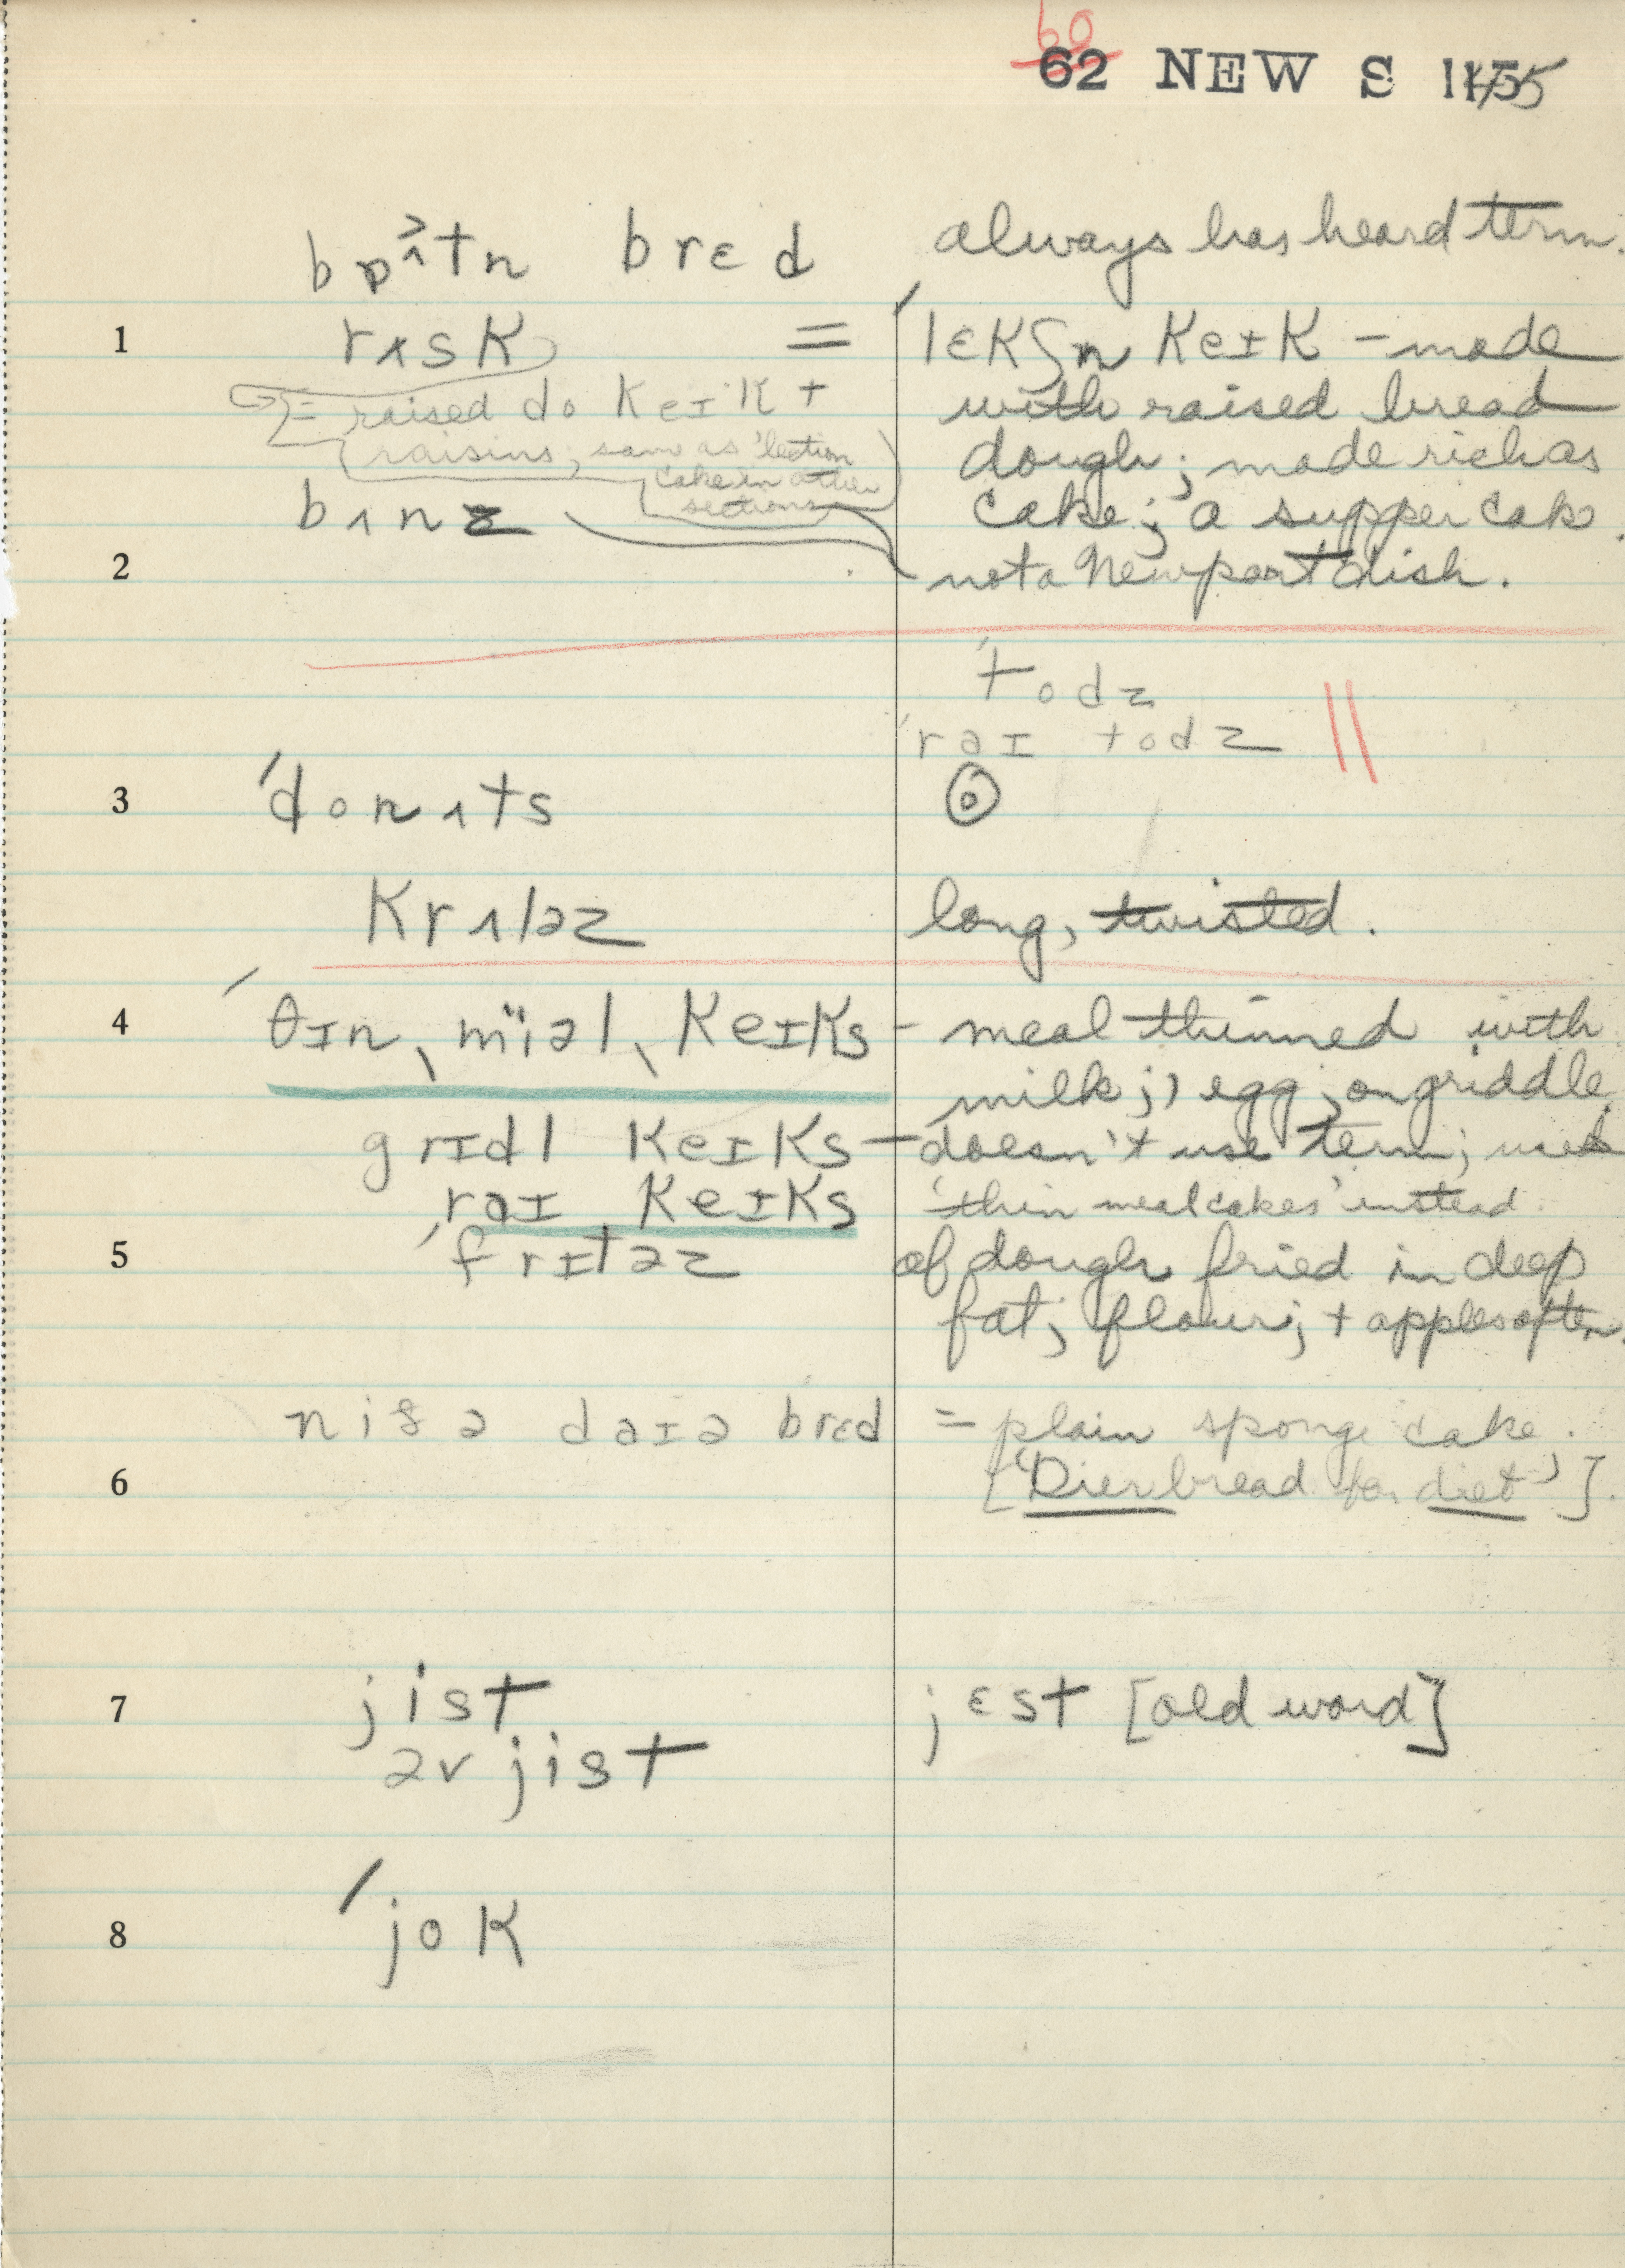 60
62 NEW S 1155
bɒ^tn brɛd always has heard term.
1 rʌsk = 'lɛkʃn keɪk – made
= raised do keɪk + with raised bread
raisins; same as 'lection dough; made rich as
cake in other
sections cake; a supper cake.
bʌnz not a Newport dish.
2
'todz
'raɪ todz
3 'donʌts
krʌləz long, twisted.
4 'θɪn, miəl, keɪks – meal thinned with
milk; 1 egg; on griddle
grɪdl keɪks – doesn't use term; uses
raɪ keɪks 'thin meal cakes' instead.
5 'frɪtəz of dough fried in deep
fat; flour; + apples often.
daɪə brɛd = plain sponge cake.
6 ['Dier bread for diet']
7 jist jɛst [old word]
əv jist
8 'jok